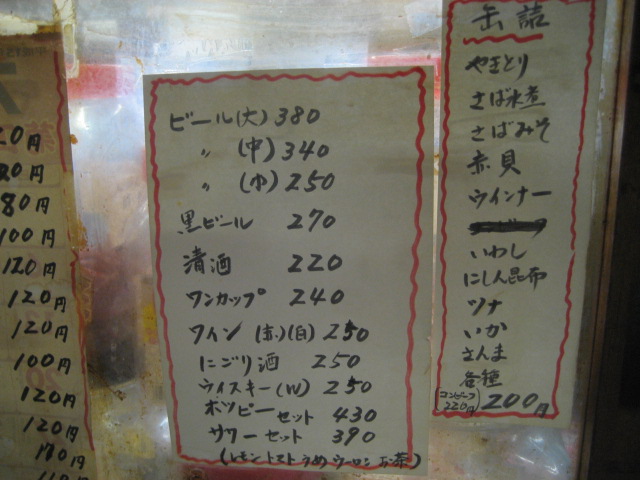 20円
80円
100円
120円
120円
120円
100円
120円
120円
ビール(大) 380
〃 (中) 340
〃 (小) 250
黒ビール 270
清酒 220
ワンカップ 240
ワイン (赤)(白) 250
にごり酒 250
ウイスキー(W) 250
ホッピーセット 430
サワーセット 390
(レモン トマト うめ ウーロン お茶)
缶詰
やきとり
さば水煮
さばみそ
赤貝
ウインナー
いわし
にしん昆布
ツナ
いか
さんま
各種
(コンビーフ 220円) 200円